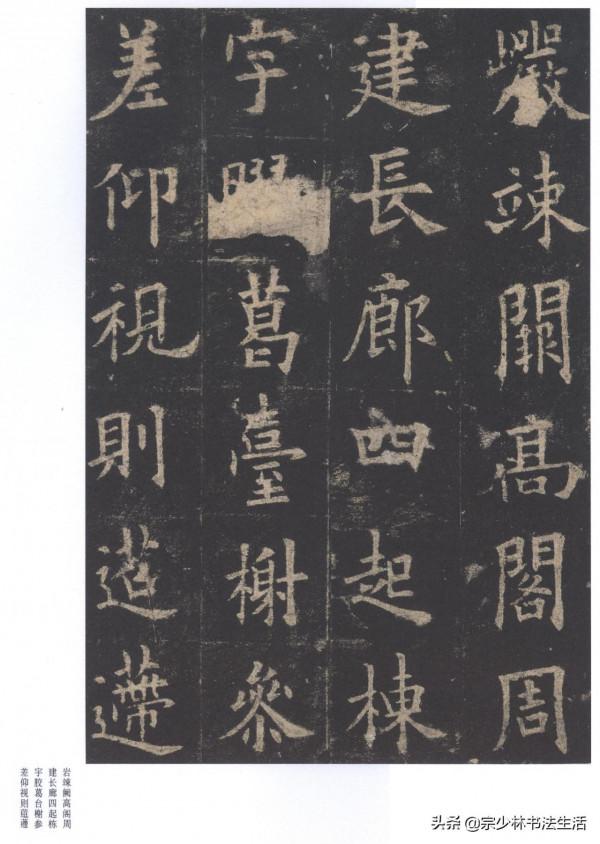 巖竦闕高閣周
建長廊四起棟
宇葛臺榭參
差仰視則迢遰
岩竦阙高阁周
建长廊四起栋
宇胶葛台榭参
差仰视则
头条 @宗少林书法生活